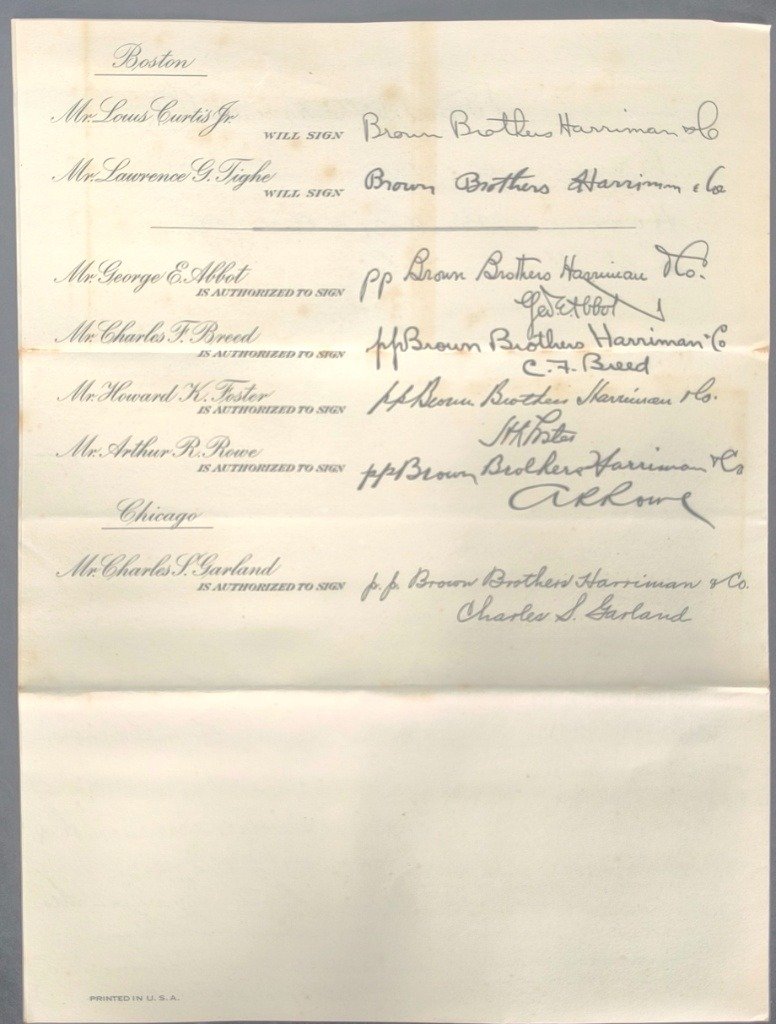 Boston
Mr. Louis Curtis Jr
WILL SIGN Brown Brothers Harriman & Co
Mr. Lawrence G. Tighe
WILL SIGN Brown Brothers Harriman & Co
Mr. George E. Abbot
IS AUTHORIZED TO SIGN pp Brown Brothers Harriman & Co.
Geo E Abbot
Mr. Charles F. Breed
IS AUTHORIZED TO SIGN pp Brown Brothers Harriman & Co
C. F. Breed
Mr. Howard K. Foster
IS AUTHORIZED TO SIGN pp Brown Brothers Harriman & Co.
HK Foster
Mr. Arthur R. Rowe
IS AUTHORIZED TO SIGN pp Brown Brothers Harriman & Co
A R Rowe
Chicago
Mr. Charles S. Garland
IS AUTHORIZED TO SIGN p. p. Brown Brothers Harriman & Co.
Charles S. Garland
PRINTED IN U. S. A.